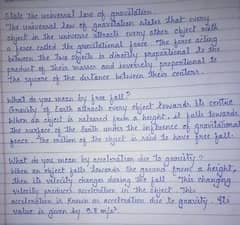 State the universal law of gravitation
The universal law of gravitation states that every
object in the universe attracts every other object with
a force called the gravitational force. The force acting
between the two objects is directly proportional to the
product of their masses and inversely proportional to
the square of the distance between their centers.
What do you mean by free fall?
Gravity of Earth attracts every object towards its centre.
When an object is released from a height, it falls towards
the surface of the Earth under the influence of gravitational
force. The motion of the object is said to have free fall.
What do you mean by acceleration due to gravity?
When an object falls towards the ground from a height,
then its velocity changes during the fall. This changing
velocity produces acceleration in the object. This
acceleration is known as acceleration due to gravity. Its
value is given by 9.8 m/s²